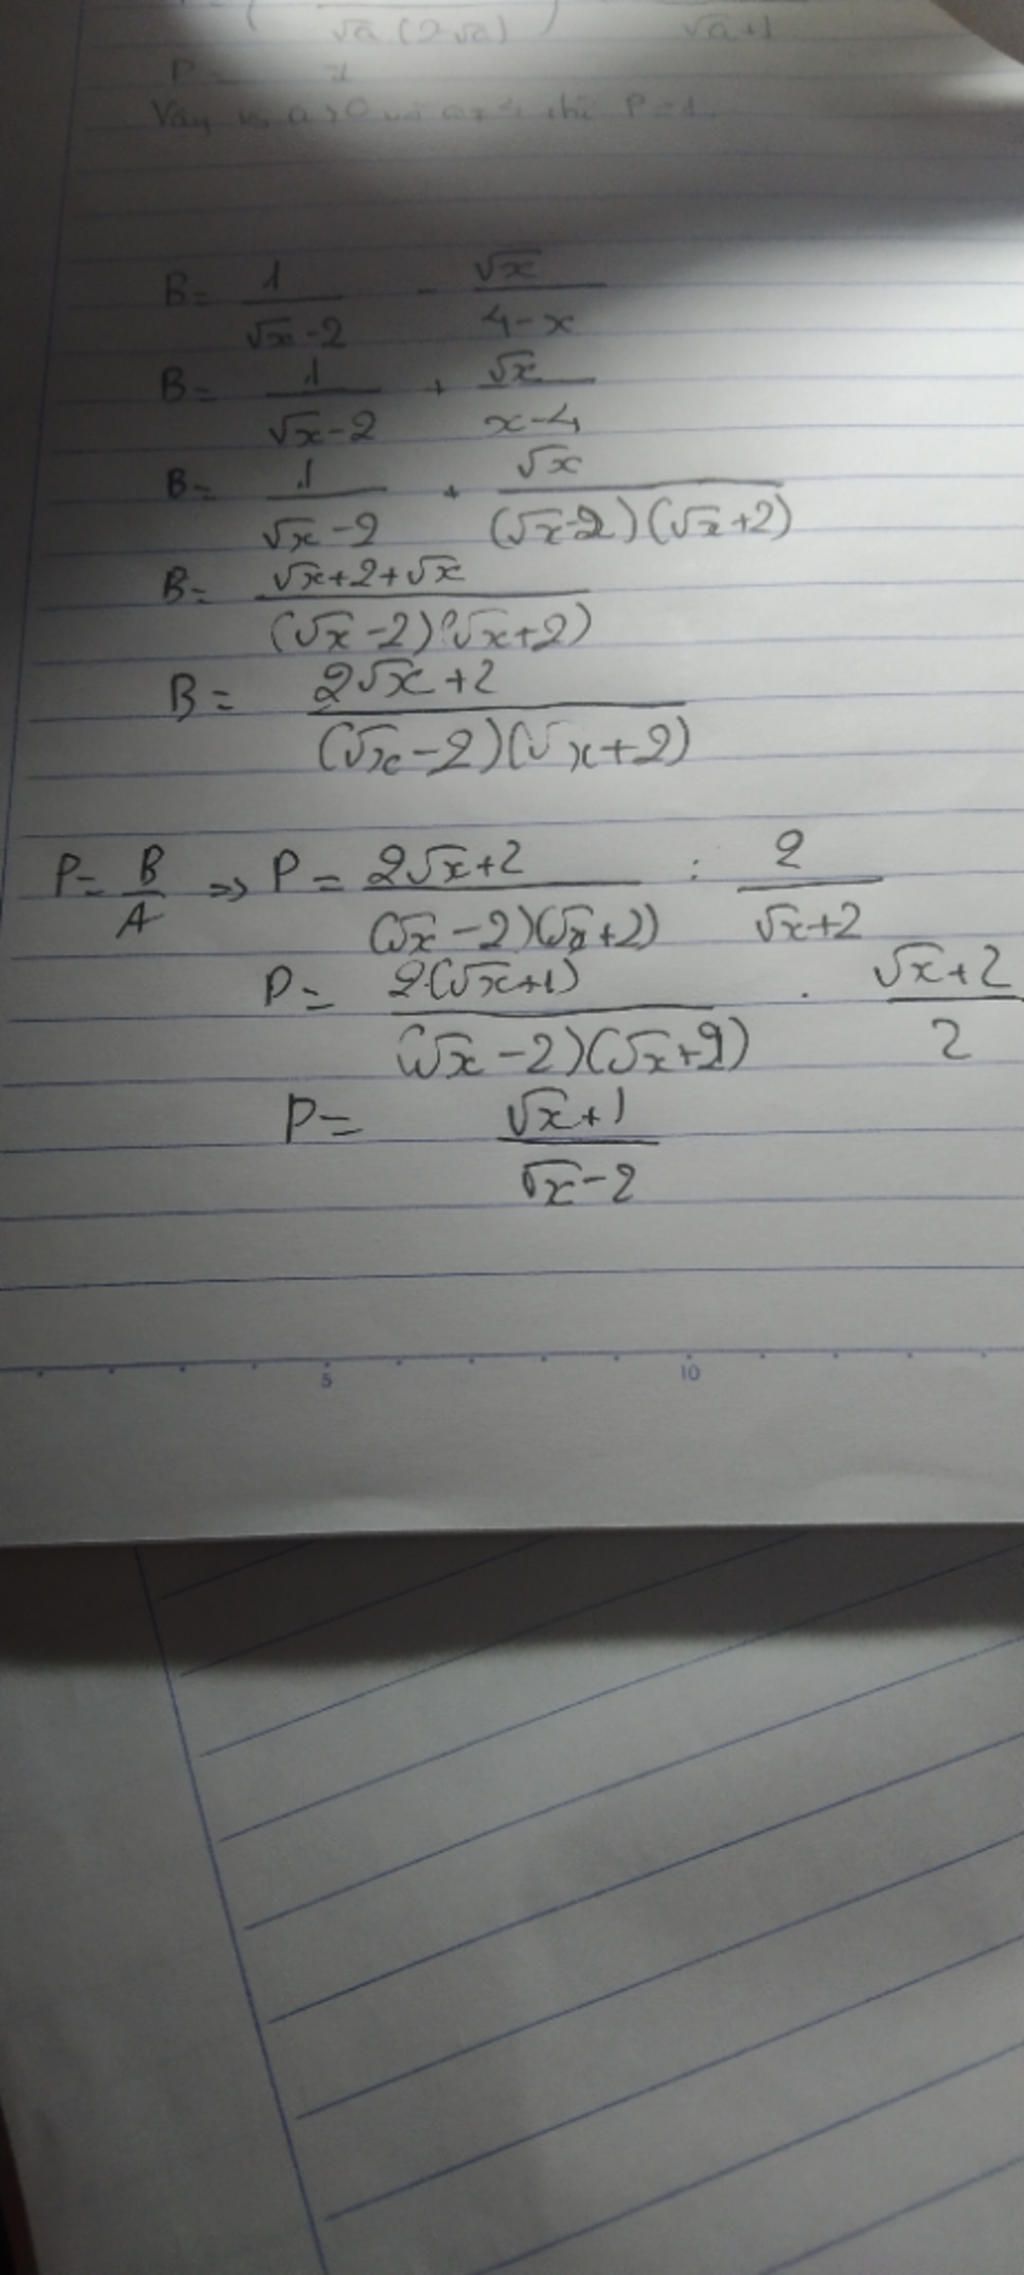 √a (2-√a) √a+1
P = 1
Vậy vs a>0 và a≠4 thì P=1.
B = 1/(√x-2) - √x/(4-x)
B = 1/(√x-2) + √x/(x-4)
B = 1/(√x-2) + √x/((√x-2)(√x+2))
B = (√x+2+√x)/((√x-2)(√x+2))
B = (2√x+2)/((√x-2)(√x+2))
P = B/A => P = (2√x+2)/((√x-2)(√x+2)) : 2/(√x+2)
P = 2(√x+1)/((√x-2)(√x+2)) . (√x+2)/2
P = (√x+1)/(√x-2)
5 10